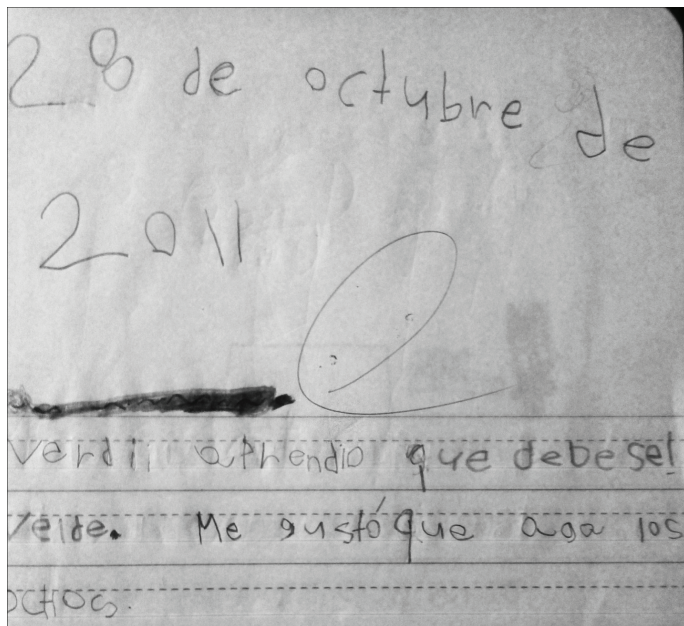 28 de octubre de
2011
verdi aprendio que debe sel
velde. Me gustó que aga los
ochos.